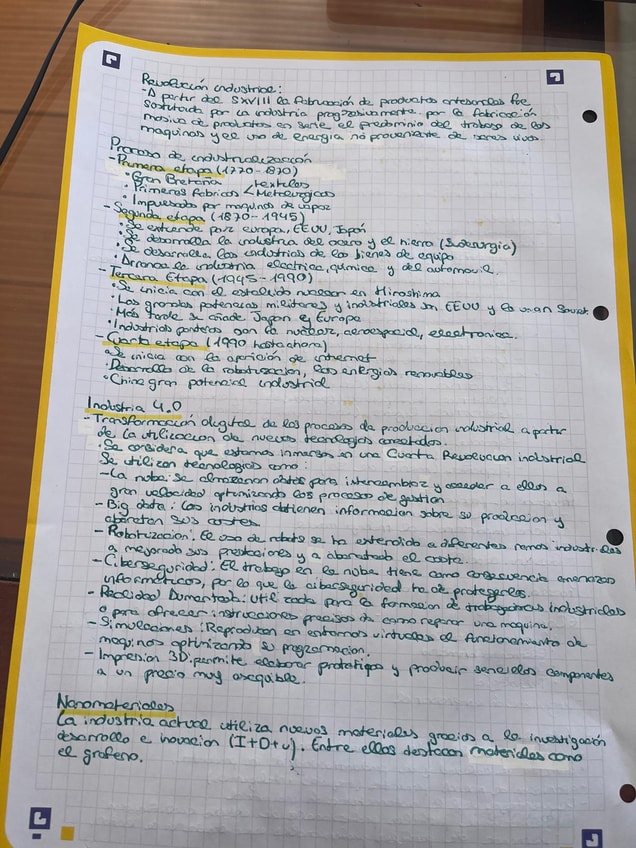 Revolución industrial:
-A partir del SXVIII la fabricación de productos artesanales fue
sustituida por la industria progresivamente por la fabricación
masiva de productos en serie el predominio del trabajo de las
maquinas y el uso de energia no proveniente de seres vivos.
Proceso de industrialización
-Primera etapa (1770-1870)
• Gran Bretaña
• Primeras fabricas < textiles Metalurgicas
• Impulsado por maquinas de vapor
-Segunda etapa (1870-1945)
• Se extiende por europa, EEUU, Japón
• Se desarrolla la industria del acero y el hierro (Siderurgia)
• Se desarrolla las industrias de los bienes de equipo
• Arranca la industria electrica, quimica y del automovil.
-Tercera Etapa (1945-1990)
• Se inicia con el estallido nuclear en Hiroshima
• Las grandes potencias militares y industriales son EEUU y la union Soviet
• Más tarde se añade Japon y Europa
• Industrias punteras son la nuclear, aeroespacial, electronica.
-Cuarta etapa (1990 hasta ahora)
• Se inicia con la aparición de internet
• Desarrollo de la robotizacion, las energias renovables
• China gran potencial industrial
Industria 4.0
-Transformación digital de los procesos de produccion industrial a partir
de la utilizacion de nuevas tecnologias conectadas.
• Se considera que estamos inmersos en una Cuarta Revolucion industrial
Se utilizan tecnologias como:
-La nube: se almacenan datos para intercambiar y acceder a ellos a
gran velocidad optimizando los procesos de gestion
-Big data: Las industrias obtienen informacion sobre su produccion y
abaratan sus costes.
-Robotizacion: El uso de robots se ha extendido a diferentes ramas industriales
a mejorado sus prestaciones y a abaratado el coste.
-Ciberseguridad: El trabajo en la nube tiene como consecuencia amenazas
informáticas, por lo que la ciberseguridad ha de protegerlos.
-Realidad Aumentada: Utilizada para la formacion de trabajadores industriales
o para ofrecer instrucciones precisas de como reparar una maquina.
-Simulaciones: Reproducen en entornos virtuales el funcionamiento de
maquinas optimizando su programacion.
-Impresion 3D: permite elaborar prototipos y producir sencillos componentes
a un precio muy asequible.
Nanomateriales
La industria actual utiliza nuevos materiales gracias a la investigación
desarrollo e inovacion (I+D+i). Entre ellos destacan materiales como
el grafeno.